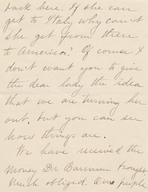 back here. If she can
get to Italy why can't
she get from there
to America? Of course I
don't want you to give
the dear lady the idea
that we are turning her
out, but you can see
how things are.
We have received the
money Dr. Brought
much obliged. Our people